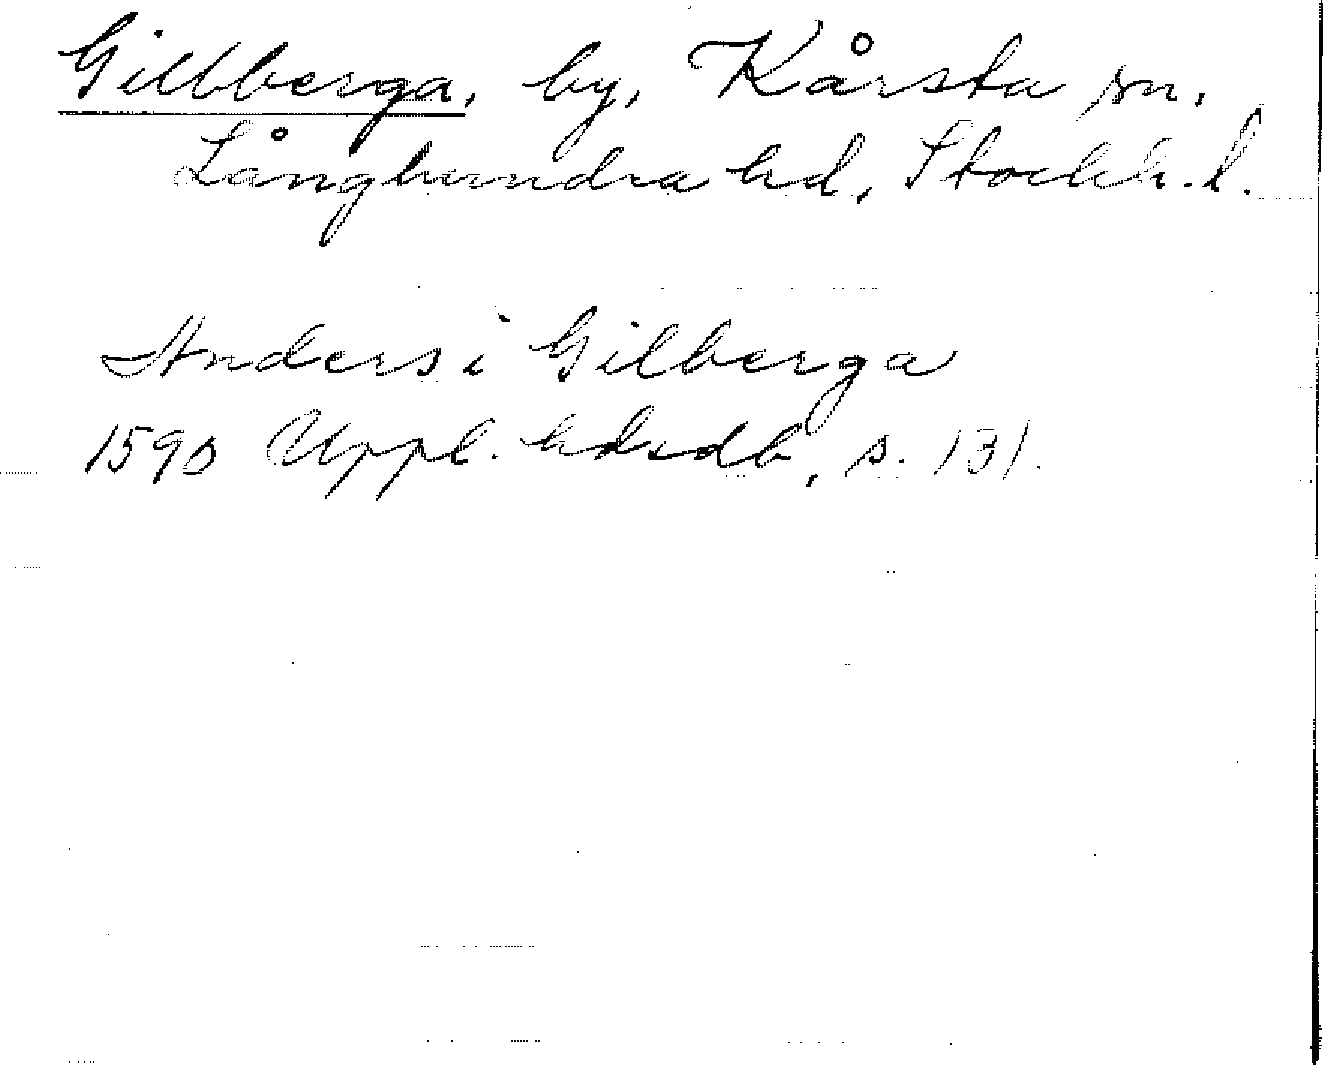 Gillberga, by, Kårsta sn.
Långhundra hd, Stockh. l.
Anders i Gilberga
1590 Uppl. hdsdb, s. 131.